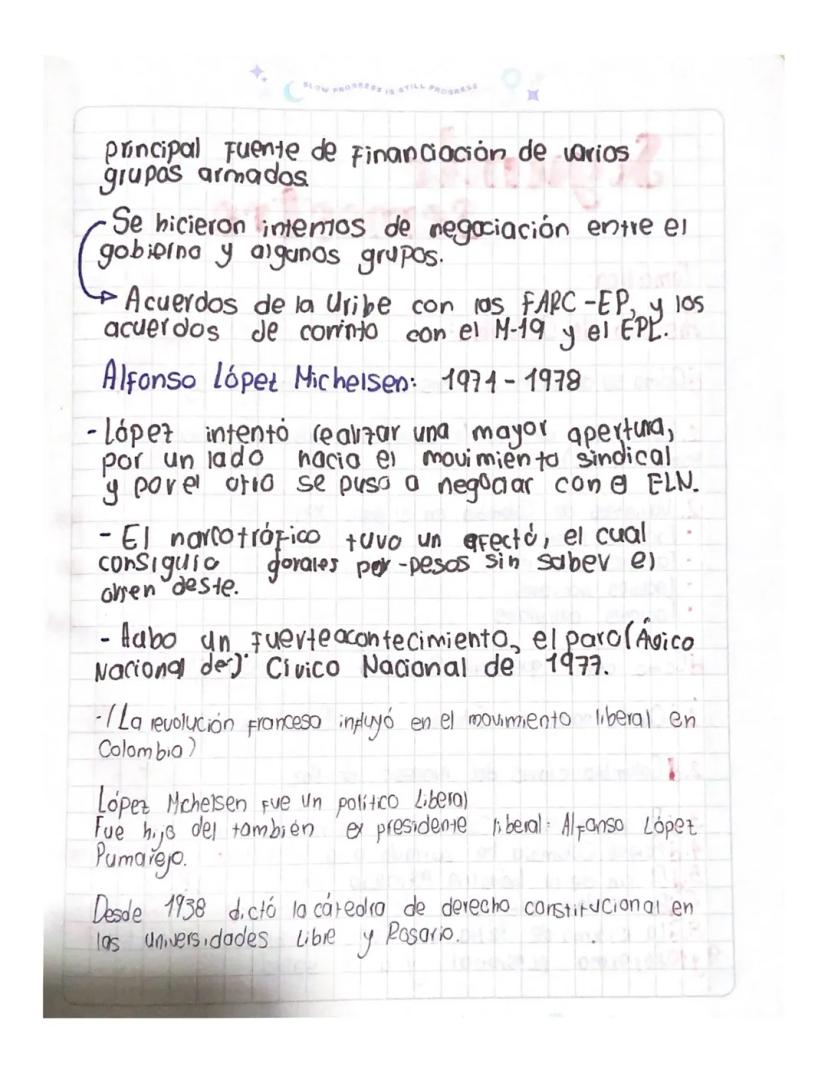 SLOW PROGRESS IS STILL PROGRESS
principal Fuente de Financiación de varios
grupos armados
Se hicieron intentos de negociación entre el
gobierno y algunos grupos.
Acuerdos de la Uribe con las FARC-EP, y los
acuerdos de corinto con el M-19 y el EPL.
Alfonso López Michelsen: 1974 - 1978
- López intentó realizar una mayor apertura,
por un lado hacia el movimiento sindical
y por el otro se puso a negociar con el ELN.
- El narcotráfico tuvo un efectó, el cual
consiguio por -pesos sin saber el
deste.
- Hubo un fuerte acontecimiento, el paro (
Nacional de) Cívico Nacional de 1977.
-(La revolución francesa influyó en el movimiento liberal en
Colombia)
López Mchelsen fue un político Liberal
Fue hijo del también ex presidente liberal: Alfonso López
Pumarejo.
Desde 1938 dictó la cátedra de derecho constitucional en
las universidades Libre y Rosario.